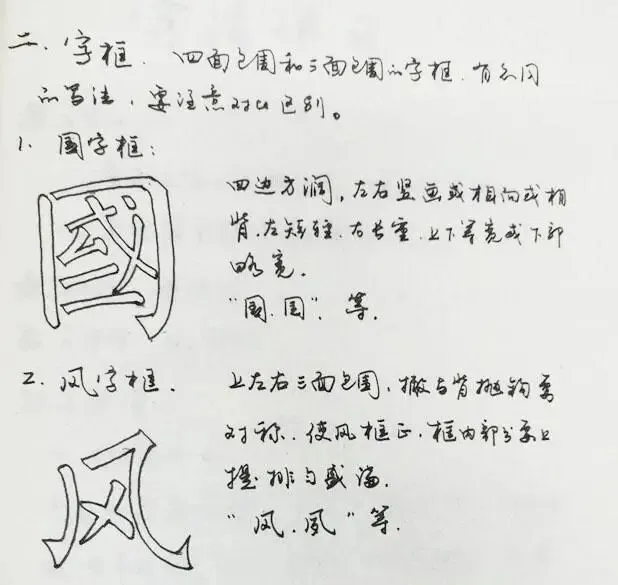 二、字框、四面包围和三面包围的字框,有不同
的写法,要注意对比区别。
1、国字框:
國
四边方润,左右竖画或相向或相
背,左短轻,右长重,上下等宽或下部
略宽.
"国、国",等.
2、风字框.
风
上左右三面包围,撇与背抛钩要
对称.使风框正,框内部分要上
提,排匀盛满.
"风、夙"等.